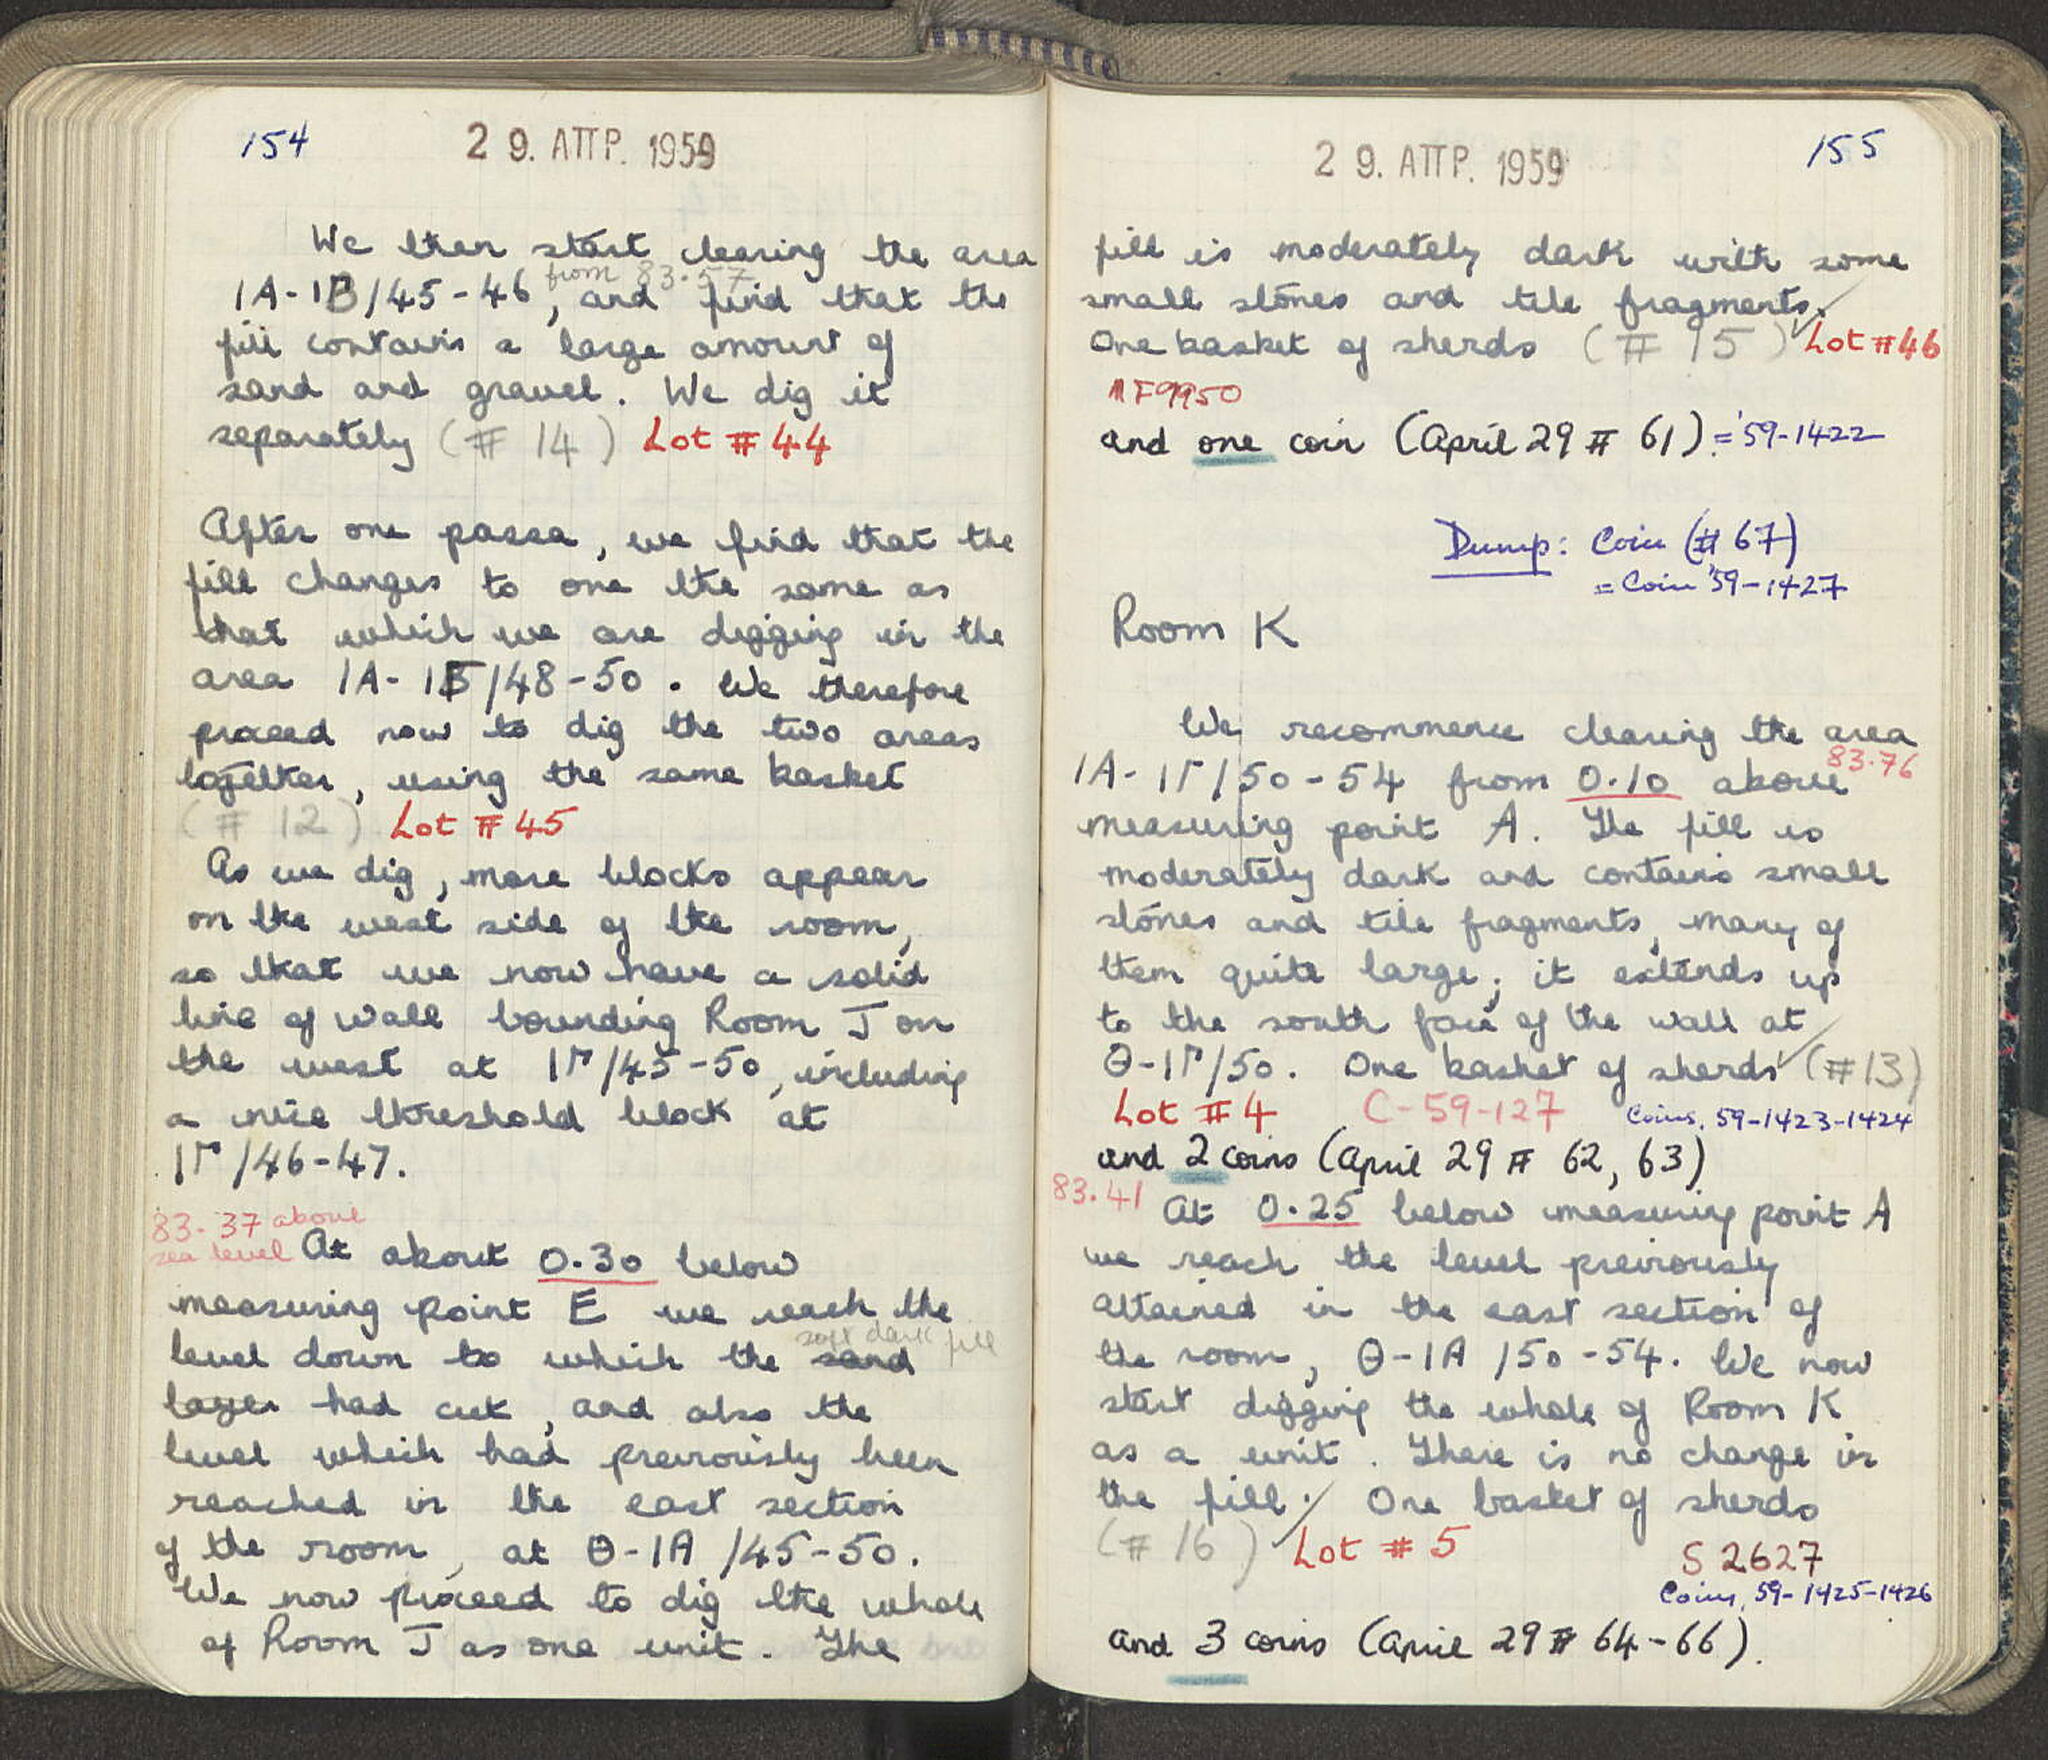 154
29. ΑΠΡ. 1959
We then start clearing the area
from 83.57
1A-1B/45-46, and find that the
fill contains a large amount of
sand and gravel. We dig it
separately (# 14) Lot # 44
After one passa, we find that the
fill changes to one the same as
that which we are digging in the
area 1A-1B/48-50. We therefore
proceed now to dig the two areas
together, using the same basket
(# 12) Lot # 45
As we dig, more blocks appear
on the west side of the room,
so that we now have a solid
line of wall bounding Room J on
the west at 1Γ/45-50, including
a nice threshold block at
1Γ/46-47.
83.37 above
sea level At about 0.30 below
measuring point E we reach the
soft dark fill
level down to which the sand
layer had cut, and also the
level which had previously been
reached in the east section
of the room, at Θ-1A/45-50.
We now proceed to dig the whole
of Room J as one unit. The
29. ΑΠΡ. 1959
155
fill is moderately dark with some
small stones and tile fragments.
One basket of sherds (# 15) Lot #46
MF9950
and one coin (April 29 # 61). = '59-1422
Dump: Coin (# 67)
= Coin '59-1427
Room K
We recommence clearing the area
83.76
1A-1Γ/50-54 from 0.10 above
measuring point A. The fill is
moderately dark and contains small
stones and tile fragments, many of
them quite large; it extends up
to the south face of the wall at
Θ-1Γ/50. One basket of sherds (#13)
Lot # 4 C-59-127 Coins, 59-1423-1424
and 2 coins (April 29 # 62, 63)
83.41
At 0.25 below measuring point A
we reach the level previously
attained in the east section of
the room, Θ-1A/50-54. We now
start digging the whole of Room K
as a unit. There is no change in
the fill. One basket of sherds
(# 16) Lot # 5 S 2627
Coins, 59-1425-1426
and 3 coins (April 29 # 64-66).